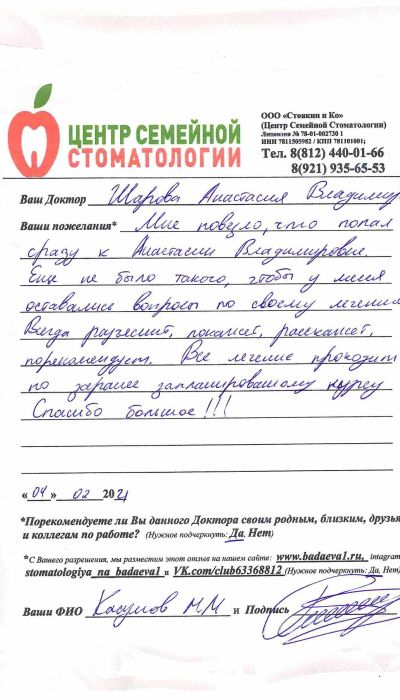 ЦЕНТР СЕМЕЙНОЙ
СТОМАТОЛОГИИ
ООО «Стоякин и Ко»
(Центр Семейной Стоматологии)
Лицензия № 78-01-002730 1
ИНН 7811505982 / КПП 781101001;
Тел. 8(812) 440-01-66
8(921) 935-65-53
Ваш Доктор Шарова Анастасия Владимир
Ваши пожелания* Мне повезло, что попал
сразу к Анастасии Владимировне.
Еще не было такого, чтобы у меня
оставались вопросы по своему лечению
Всегда разъяснит, покажет, расскажет,
порекомендует. Все лечение проходит
по заранее запланированному курсу
Спасибо большое!!!
«04» 02 2021
*Порекомендуете ли Вы данного Доктора своим родным, близким, друзья
и коллегам по работе? (Нужное подчеркнуть: Да, Нет)
*С Вашего разрешения, мы разместим этот отзыв на нашем сайте: www.badaeva1.ru, intagram
stomatologiya_na_badaeva1 и VK.com/club63368812 (Нужное подчеркнуть: Да, Нет)
Ваши ФИО Касумов М М и Подпись